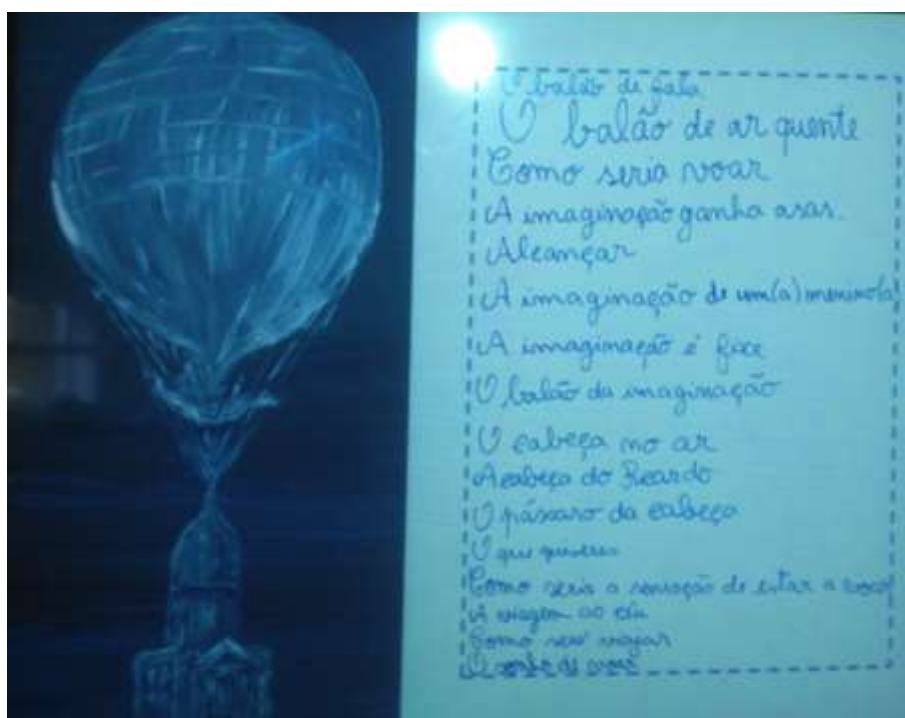 O balão de gala
O balão de ar quente
Como seria voar
A imaginação ganha asas.
Alcançar
A imaginação de um(a) menino(a)
A imaginação é fixe
O balão da imaginação
O cabeça no ar
A cabeça do Ricardo
O pássaro da cabeça
O que quiseres
Como seria a sensação de estar a voar
A viagem ao céu
Como seria viajar
O sonho de voar